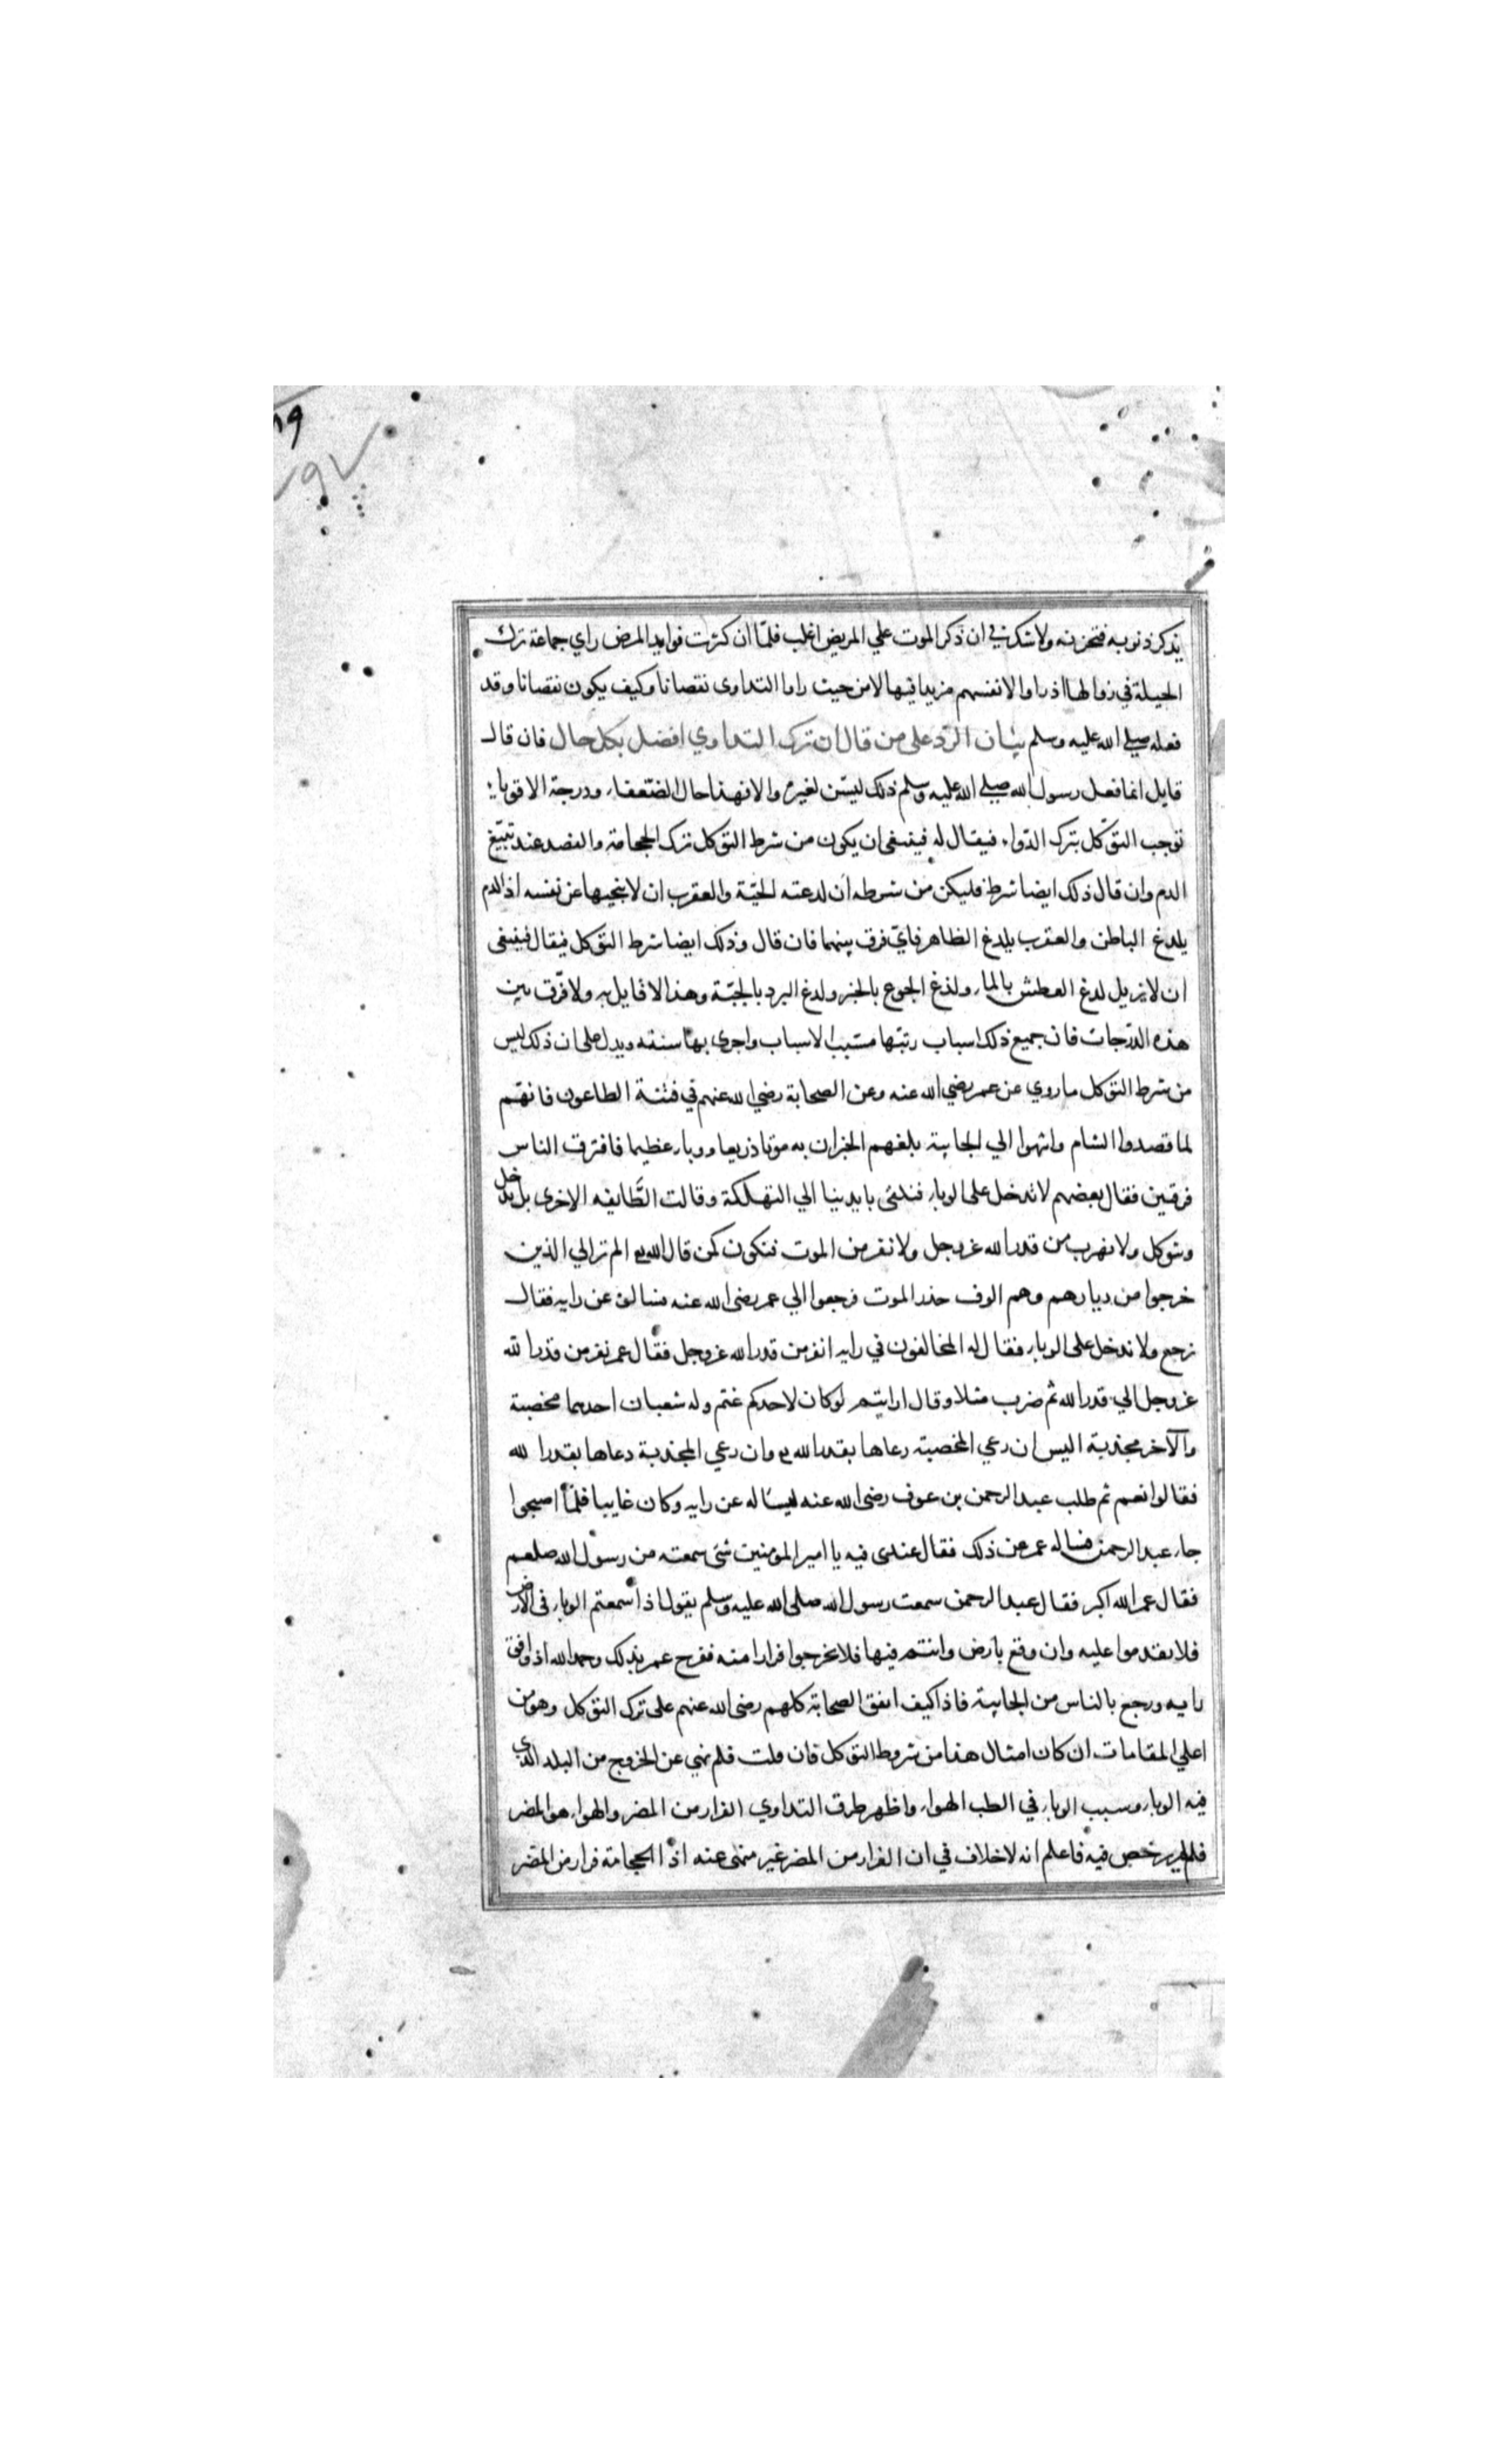 يذكر ذنوبه فتحزنه ولا شك في ان ذكر الموت علي المريض اغلب فلمّا ان كثرت فوايد المرض راي جماعة ترك
الحيلة في زوالها اذ راوا لانفسهم مزيدا فيها لا من حيث راوا التداوى نقصانا وكيف يكون نقصانا وقد
فعله صلي الله عليه وسلم بيان الردّ على من قال ان ترك التداوي افضل بكل حال فان قال
قايل انما فعل رسول الله صلي الله عليه وسلم ذلك ليسّن لغيره والا فهذا حال الضعفاء ودرجة الاقوياء
توجب التوكّل بترك الدّواء فيقال له فينبغى ان يكون من شرط التوكل ترك الحجامة والفصد عند تبيّغ
الدم وان قال ذلك ايضا شرط فليكن من شرطه ان لدعته الحيّة والعقرب ان لا ينحيها عن نفسه اذ الدم
يلدغ الباطن والعقرب يلدغ الظاهر فايّ فرق بينهما فان قال وذلك ايضا شرط التوكل فيقال فينبغى
ان لا يزيل لدغ العطش بالماء ولذغ الجوع بالخبز ولدغ البرد بالجبّة وهذا لا قايل به ولا فرّق بين
هذه الدّرجات فان جميع ذلك اسباب رتبّها مسّبب الاسباب واجرى بها سنته ويدل على ان ذلك ليس
من شرط التوكل ما روي عن عمر رضي الله عنه وعن الصحابة رضي الله عنهم في فتنة الطاعون فانهّم
لما قصدوا الشام وانتهوا الي الجابية بلغهم الخبر ان به موتا ذريعا ووباء عظيما فافترق الناس
فرقتين فقال بعضهم لا ندخل على الوباء فنلقى بايدينا الي التهلكة وقالت الطّايفه الاخرى بل ندخل
ونتوكل ولا نهرب من قدر الله عز وجل ولا نفر من الموت فنكون كمن قال الله تع الم تر الي الذين
خرجوا من ديارهم وهم الوف حذر الموت فرجعوا الي عمر رضى الله عنه فسالوه عن رايه فقال
نرجع ولا ندخل على الوباء فقال له المخالفون في رايه انفر من قدر الله عز وجل فقال عمر نفر من قدر الله
عز وجل الي قدر الله ثم ضرب مثلا وقال ارايتم لو كان لاحدكم غنم وله شعبان احدهما مخصبة
والآخر مجذبة اليس ان رعي المخصبة رعاها بقدر الله تع وان رعي المجذبة دعاها بقدر الله
فقالوا نعم ثم طلب عبد الرحمن بن عوف رضى الله عنه ليساله عن رايه وكان غايبا فلمّا اصبحوا
جاء عبد الرحمن فساله عمر عن ذلك فقال عندى فيه يا امير المومنين شئ سمعته من رسول الله صلعم
فقال عمر الله اكبر فقال عبد الرحمن سمعت رسول الله صلى الله عليه وسلم يقول اذا سمعتم الوباء فى الارض
فلا تقدموا عليه وان وقع بارض وانتم فيها فلا تخرجوا فرارا منه ففرح عمر بذلك وحمد الله اذ وافق
رايه ورجع بالناس من الجابية فاذا كيف اتفق الصحابة كلهم رضى الله عنهم على ترك التوكل وهو من
اعلي المقامات ان كان امثال هذا من شروط التوكل فان قلت فلم نهي عن الخروج من البلد الذي
فيه الوباء وسبب الوباء في الطب الهواء واظهر طرق التداوي الفرار من المضر والهواء هو المضر
فلم يرخص فيه فاعلم انه لا خلاف في ان الفرار من المضر غير منهى عنه اذ الحجامة فرار من المضر